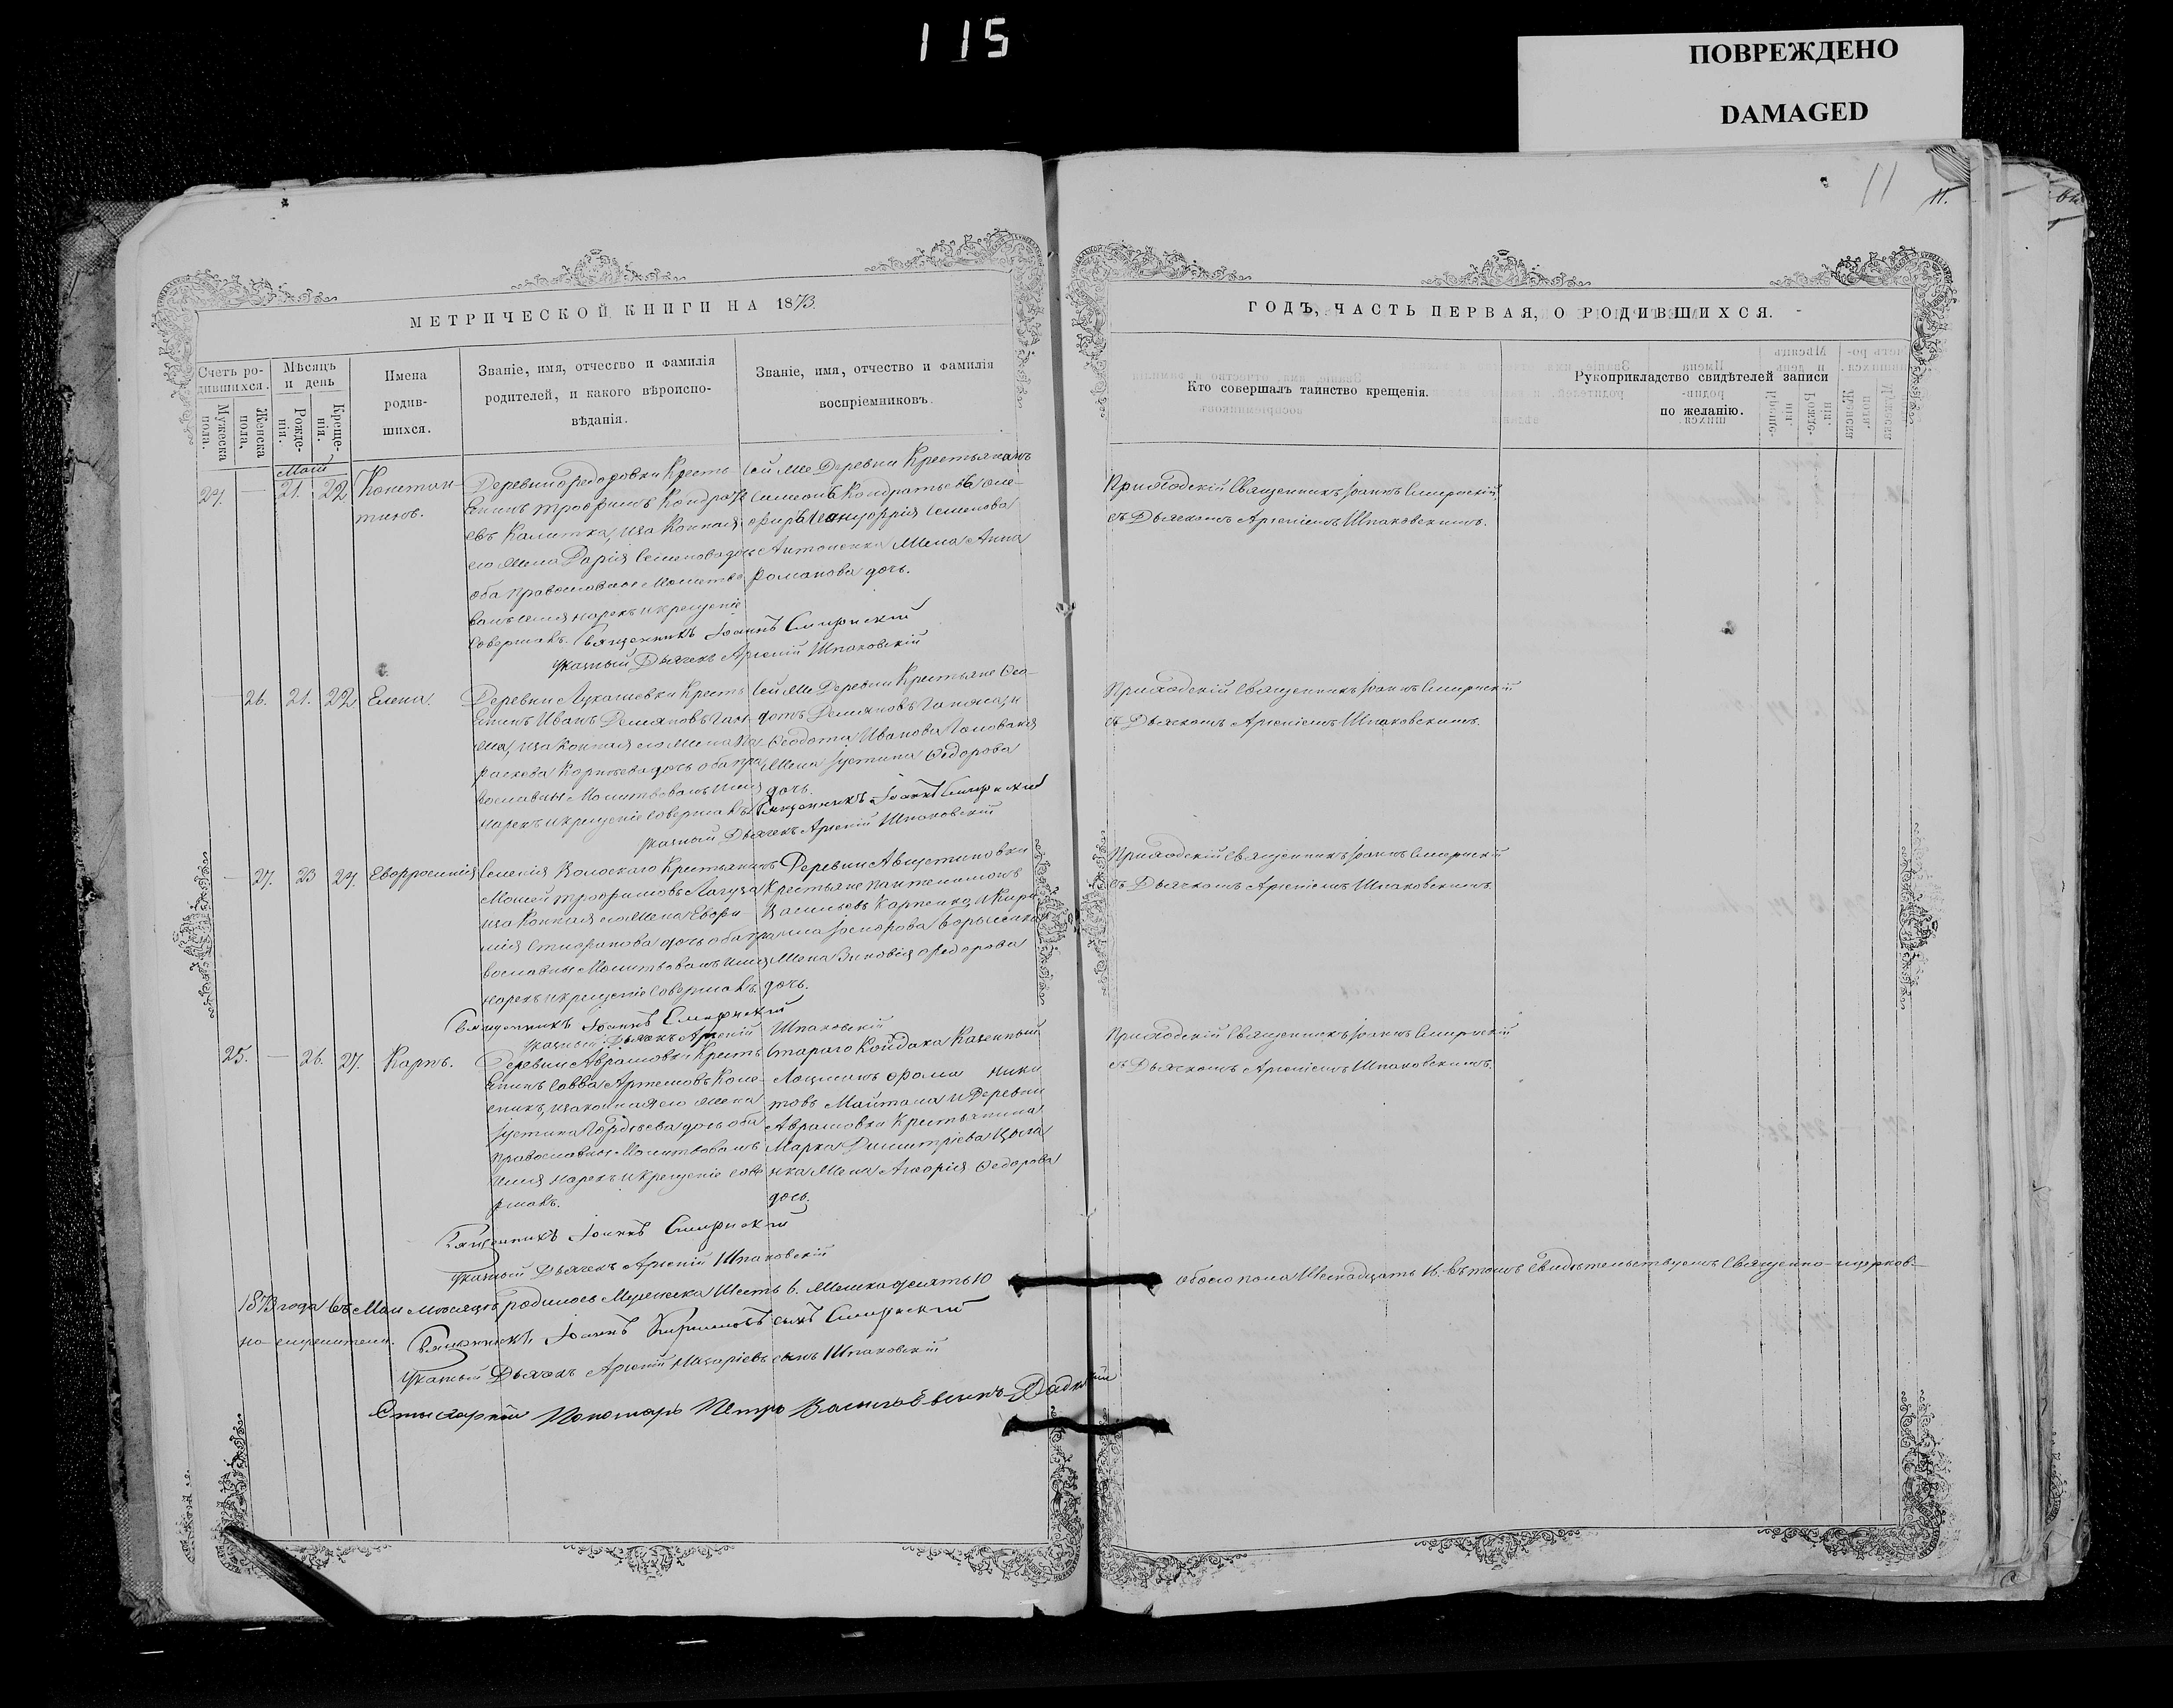 115
ПОВРЕЖДЕНО
DAMAGED
11
11.
МЕТРИЧЕСКОЙ КНИГИ НА 1873
ГОДЪ, ЧАСТЬ ПЕРВАЯ, О РОДИВШИХСЯ.
Счетъ ро-
дившихся.
Мужеска
пола.
Женска
пола.
Мѣсяцъ
и день
Рожде-
нія.
Креще-
нія.
Имена
родив-
шихся.
Званіе, имя, отчество и фамилія
родителей, и какого вѣроиспо-
вѣданія.
Званіе, имя, отчество и фамилія
воспріемниковъ.
Кто совершалъ таинство крещенія.
Рукоприкладство свидѣтелей записи
по желанію.
Маій
24. — 21. 22 Констан-
тинъ.
Деревни Федоровки Кресть-
янинъ Трофимъ Кондрать
евъ Калитка, иза Конная
его жена Дарія Семенова дочь
оба православные Молитво
валъ имя нарекъ и крещеніе
Совершалъ. Священникъ Іоаннъ Смирнскій
Указный Дьячекъ Арсеній Шпаковскій
Сей же Деревни Крестьянинъ
Симеонъ Кондратьевъ
Семенова
Антоненка Жена Анна
Романова дочь.
Приходскій Священникъ Іоаннъ Смирнскій
съ Дьячкомъ Арсеніемъ Шпаковскимъ.
— 26. 21. 22 Елена.
Деревни Лукашевки Кресть
янинъ Иванъ Демяновъ Гап-
она, иза Конная его жена Па-
раскева Корнѣева дочь оба пра
вославные Молитвовалъ имя
нарекъ и крещеніе Совершалъ Священникъ Іоаннъ Смирнскій
Указный Дьячекъ Арсеній Шпаковскій
Сей же Деревни Крестьяне Ѳео-
дотъ Демяновъ Гапона, и
Ѳеодота Иванова
Жена Іустина Ѳедорова
дочь.
Приходскій Священникъ Іоаннъ Смирнскій
съ Дьячкомъ Арсеніемъ Шпаковскимъ.
— 27. 23 24. Евфросинія
Селенія Волоскаго Крестьянинъ
Моисей Трофимовъ Лагуза
иза Конная его жена Евфи-
мія Стефанова дочь оба пра
вославные Молитвовалъ имя
нарекъ и крещеніе Совершалъ.
Священникъ Іоаннъ Смирнскій
Указный Дьячекъ Арсеній Шпаковскій
Деревни Августиновки
Крестьяне Пантелимонъ
Васильевъ Карпенко, и
Жена Зиновія Федорова
дочь.
Приходскій Священникъ Іоаннъ Смирнскій
съ Дьячкомъ Арсеніемъ Шпаковскимъ.
25. — 26. 27. Карпъ.
Деревни Аврамовки Кресть
янинъ Савва Артемовъ Коле-
сникъ, иза конная его жена
Іустина Гордѣева дочь оба
православные Молитвовалъ
имя нарекъ и крещеніе сове
ршалъ.
Священникъ Іоаннъ Смирнскій
Указный Дьячекъ Арсеній Шпаковскій
Стараго Койдака Казенный
Лоцманъ Фома Ники
товъ и Деревни
Аврамовки Крестьянина
Марка Димитріева
Жена Ѳедорова
дочь.
Приходскій Священникъ Іоаннъ Смирнскій
съ Дьячкомъ Арсеніемъ Шпаковскимъ.
1873 года въ Маи мѣсяцѣ родилось Мужеска Шесть 6. Женска десять 10 обоего пола Шеснадцать 16. въ томъ Свидѣтельствуемъ Священно-церков-
но служители. Священникъ Іоаннъ сынъ Смирнскій
Указный Дьячекъ Арсеній Назаріевъ сынъ Шпаковскій
Стихарный Пономарь Петръ Васильевъ сынъ